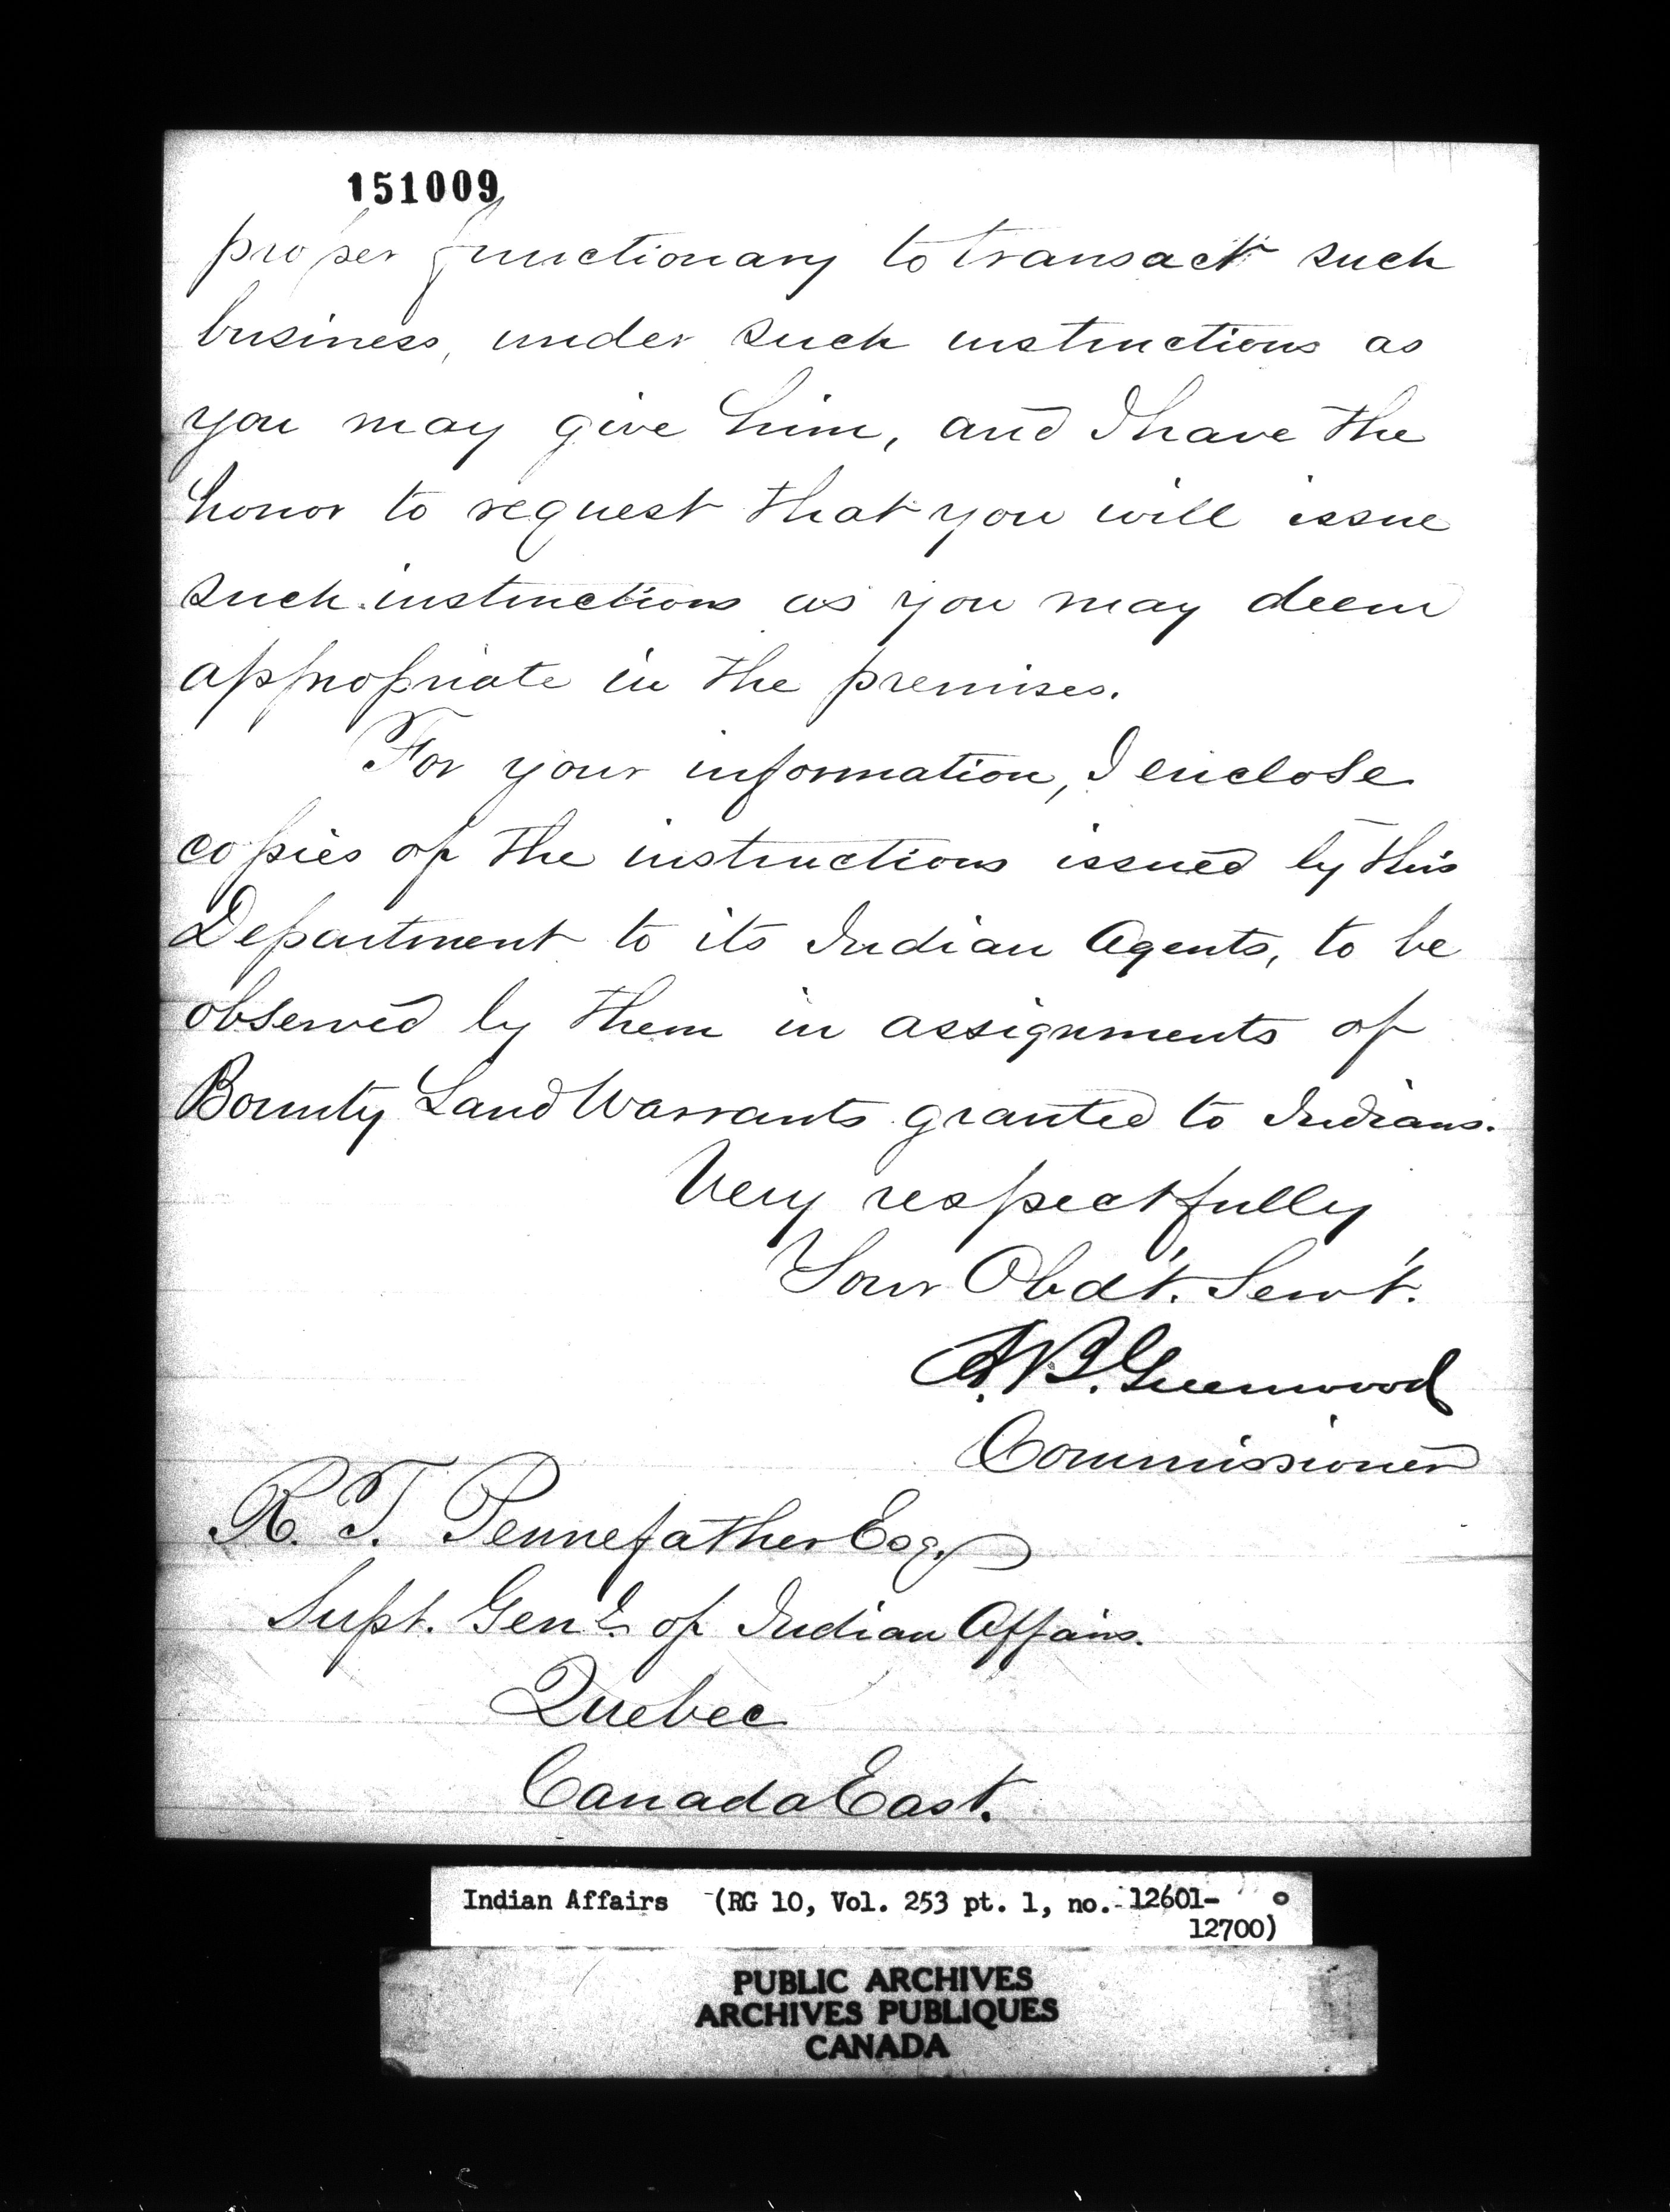 151009
proper functionary to transact such
business, under such instructions as
you may give him, and I have the
honor to request that you will issue
such instructions as you may deem
appropriate in the premises.
For your information, I enclose
copies of the instructions issued by this
Department to its Indian Agents, to be
observed by them in assignments of
Bounty Land Warrants granted to Indians.
Very respectfully
Your Obd't. Serv't.
A. B. Greenwood
Commissioner
R. T. Pennefather Esq.
Supt. Genl. of Indian Affairs.
Quebec
Canada East.
Indian Affairs (RG 10, Vol. 253 pt. 1, no. 12601-
12700)
PUBLIC ARCHIVES
ARCHIVES PUBLIQUES
CANADA